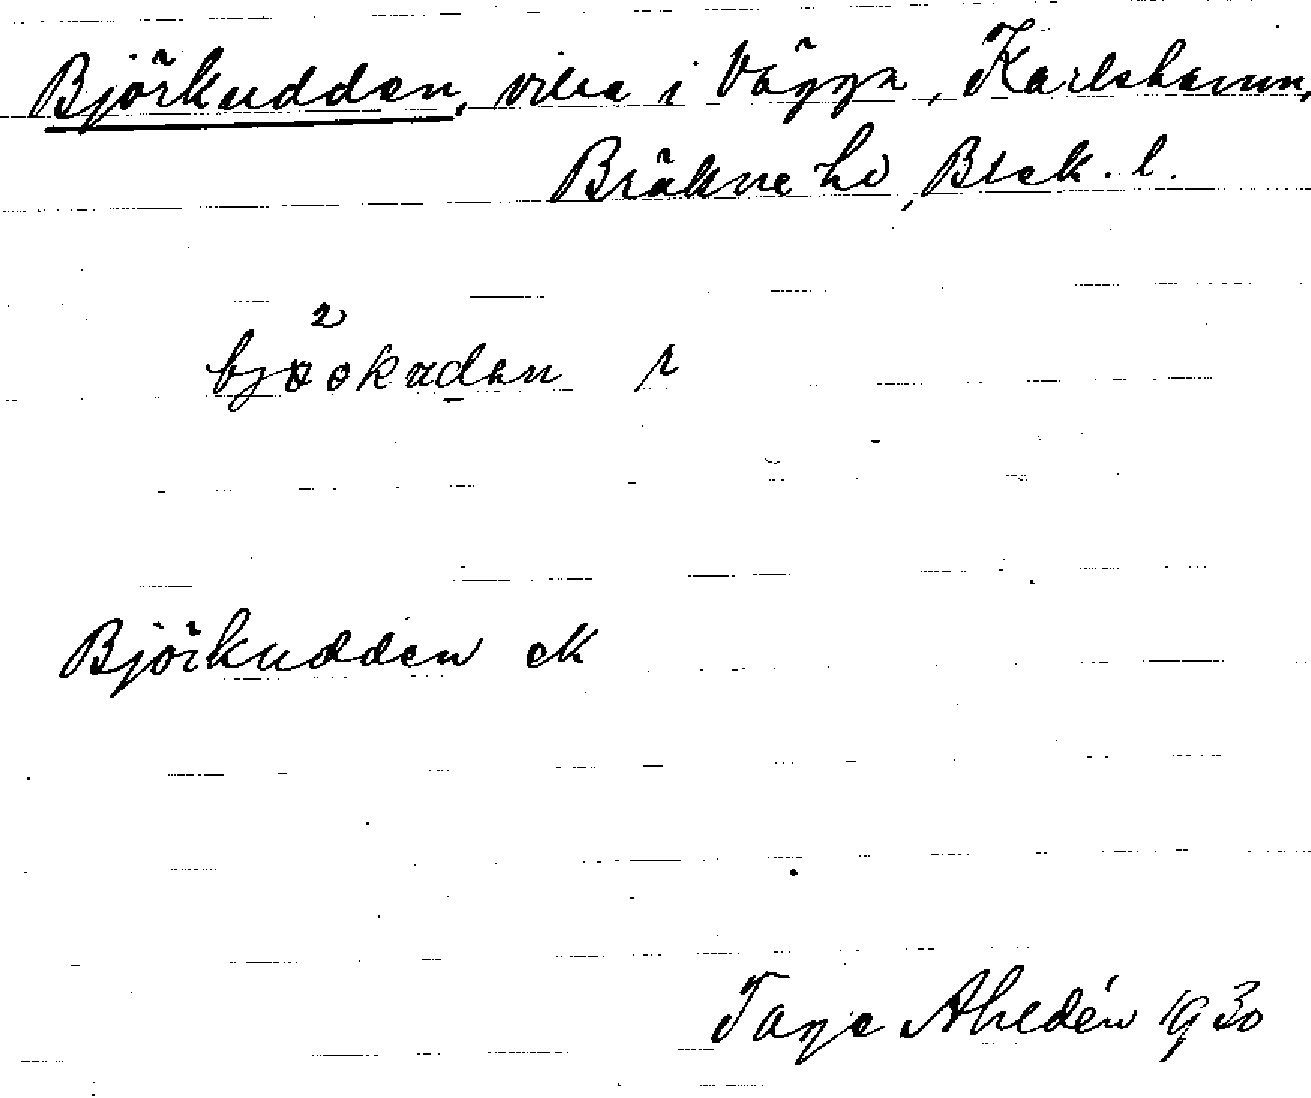 Björkudden, villa i Vägga, Karlshamn,
Bräkne hd, Blek. l.
2
bjöökudan r
Björkudden ek
Tage Ahldén 1930